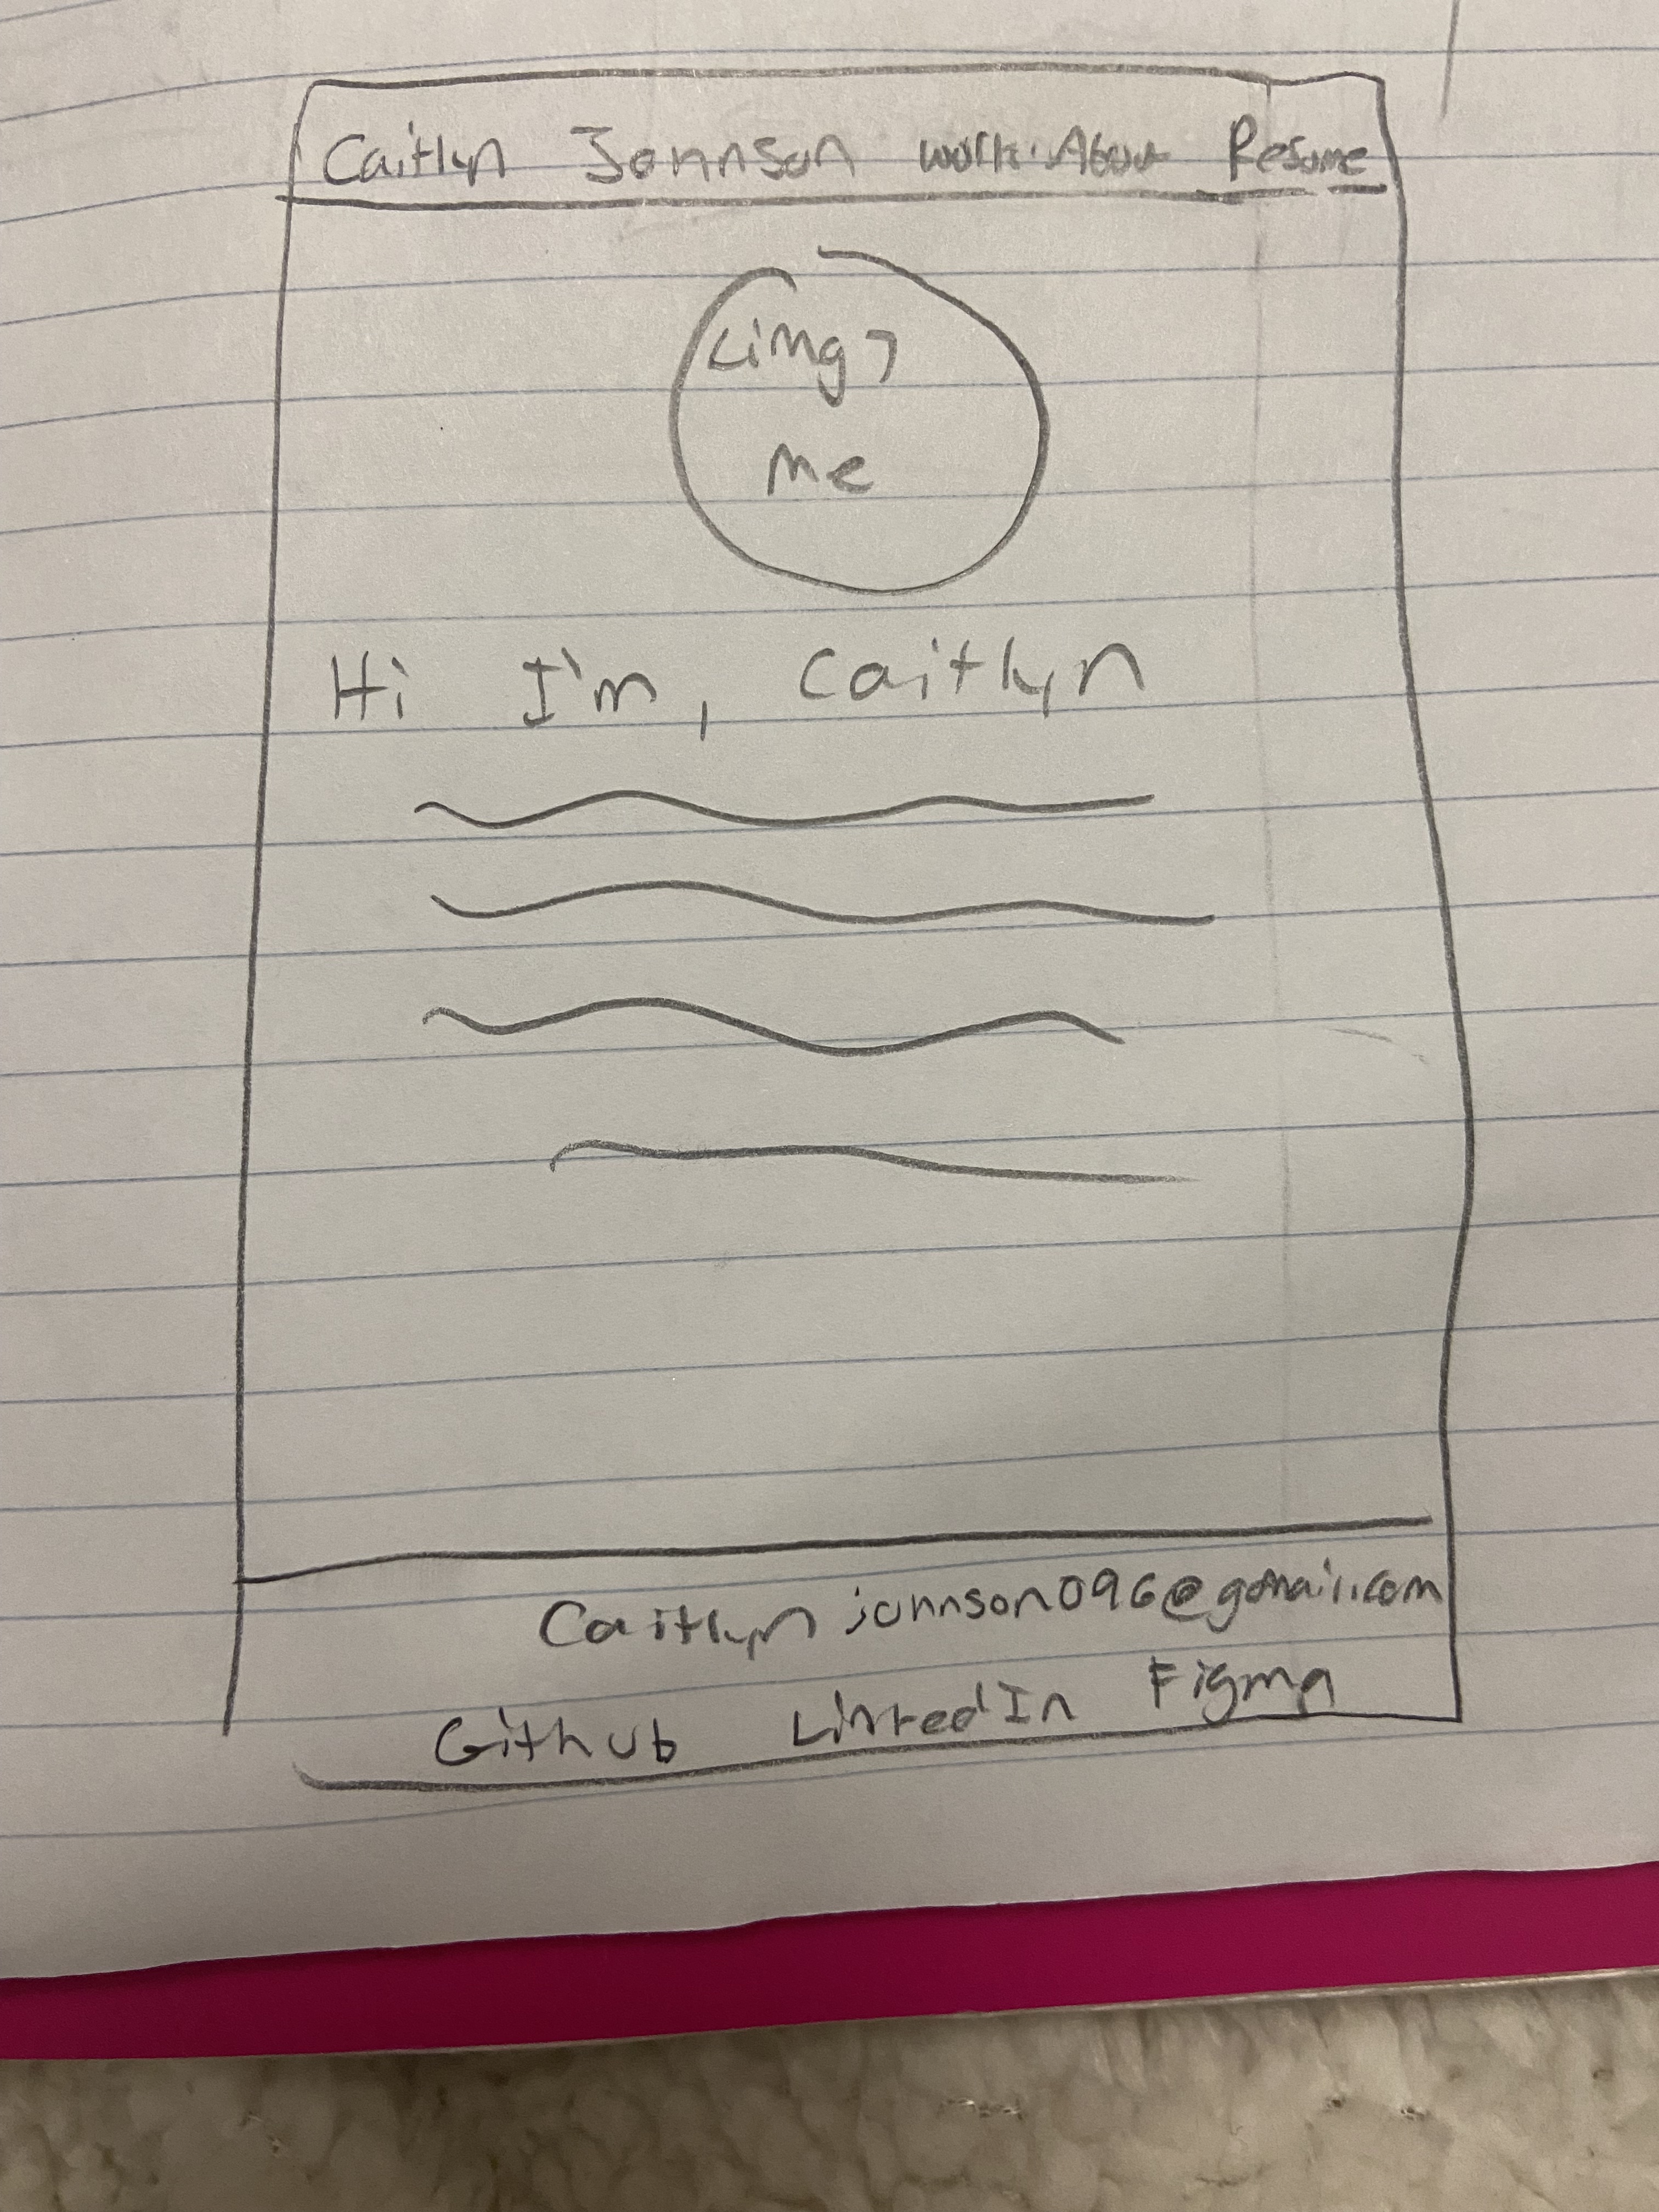 Caitlyn Johnson Work About Resume
<img>
me
Hi I'm, Caitlyn
Caitlynjohnson096@gmail.com
Github LinkedIn Figma